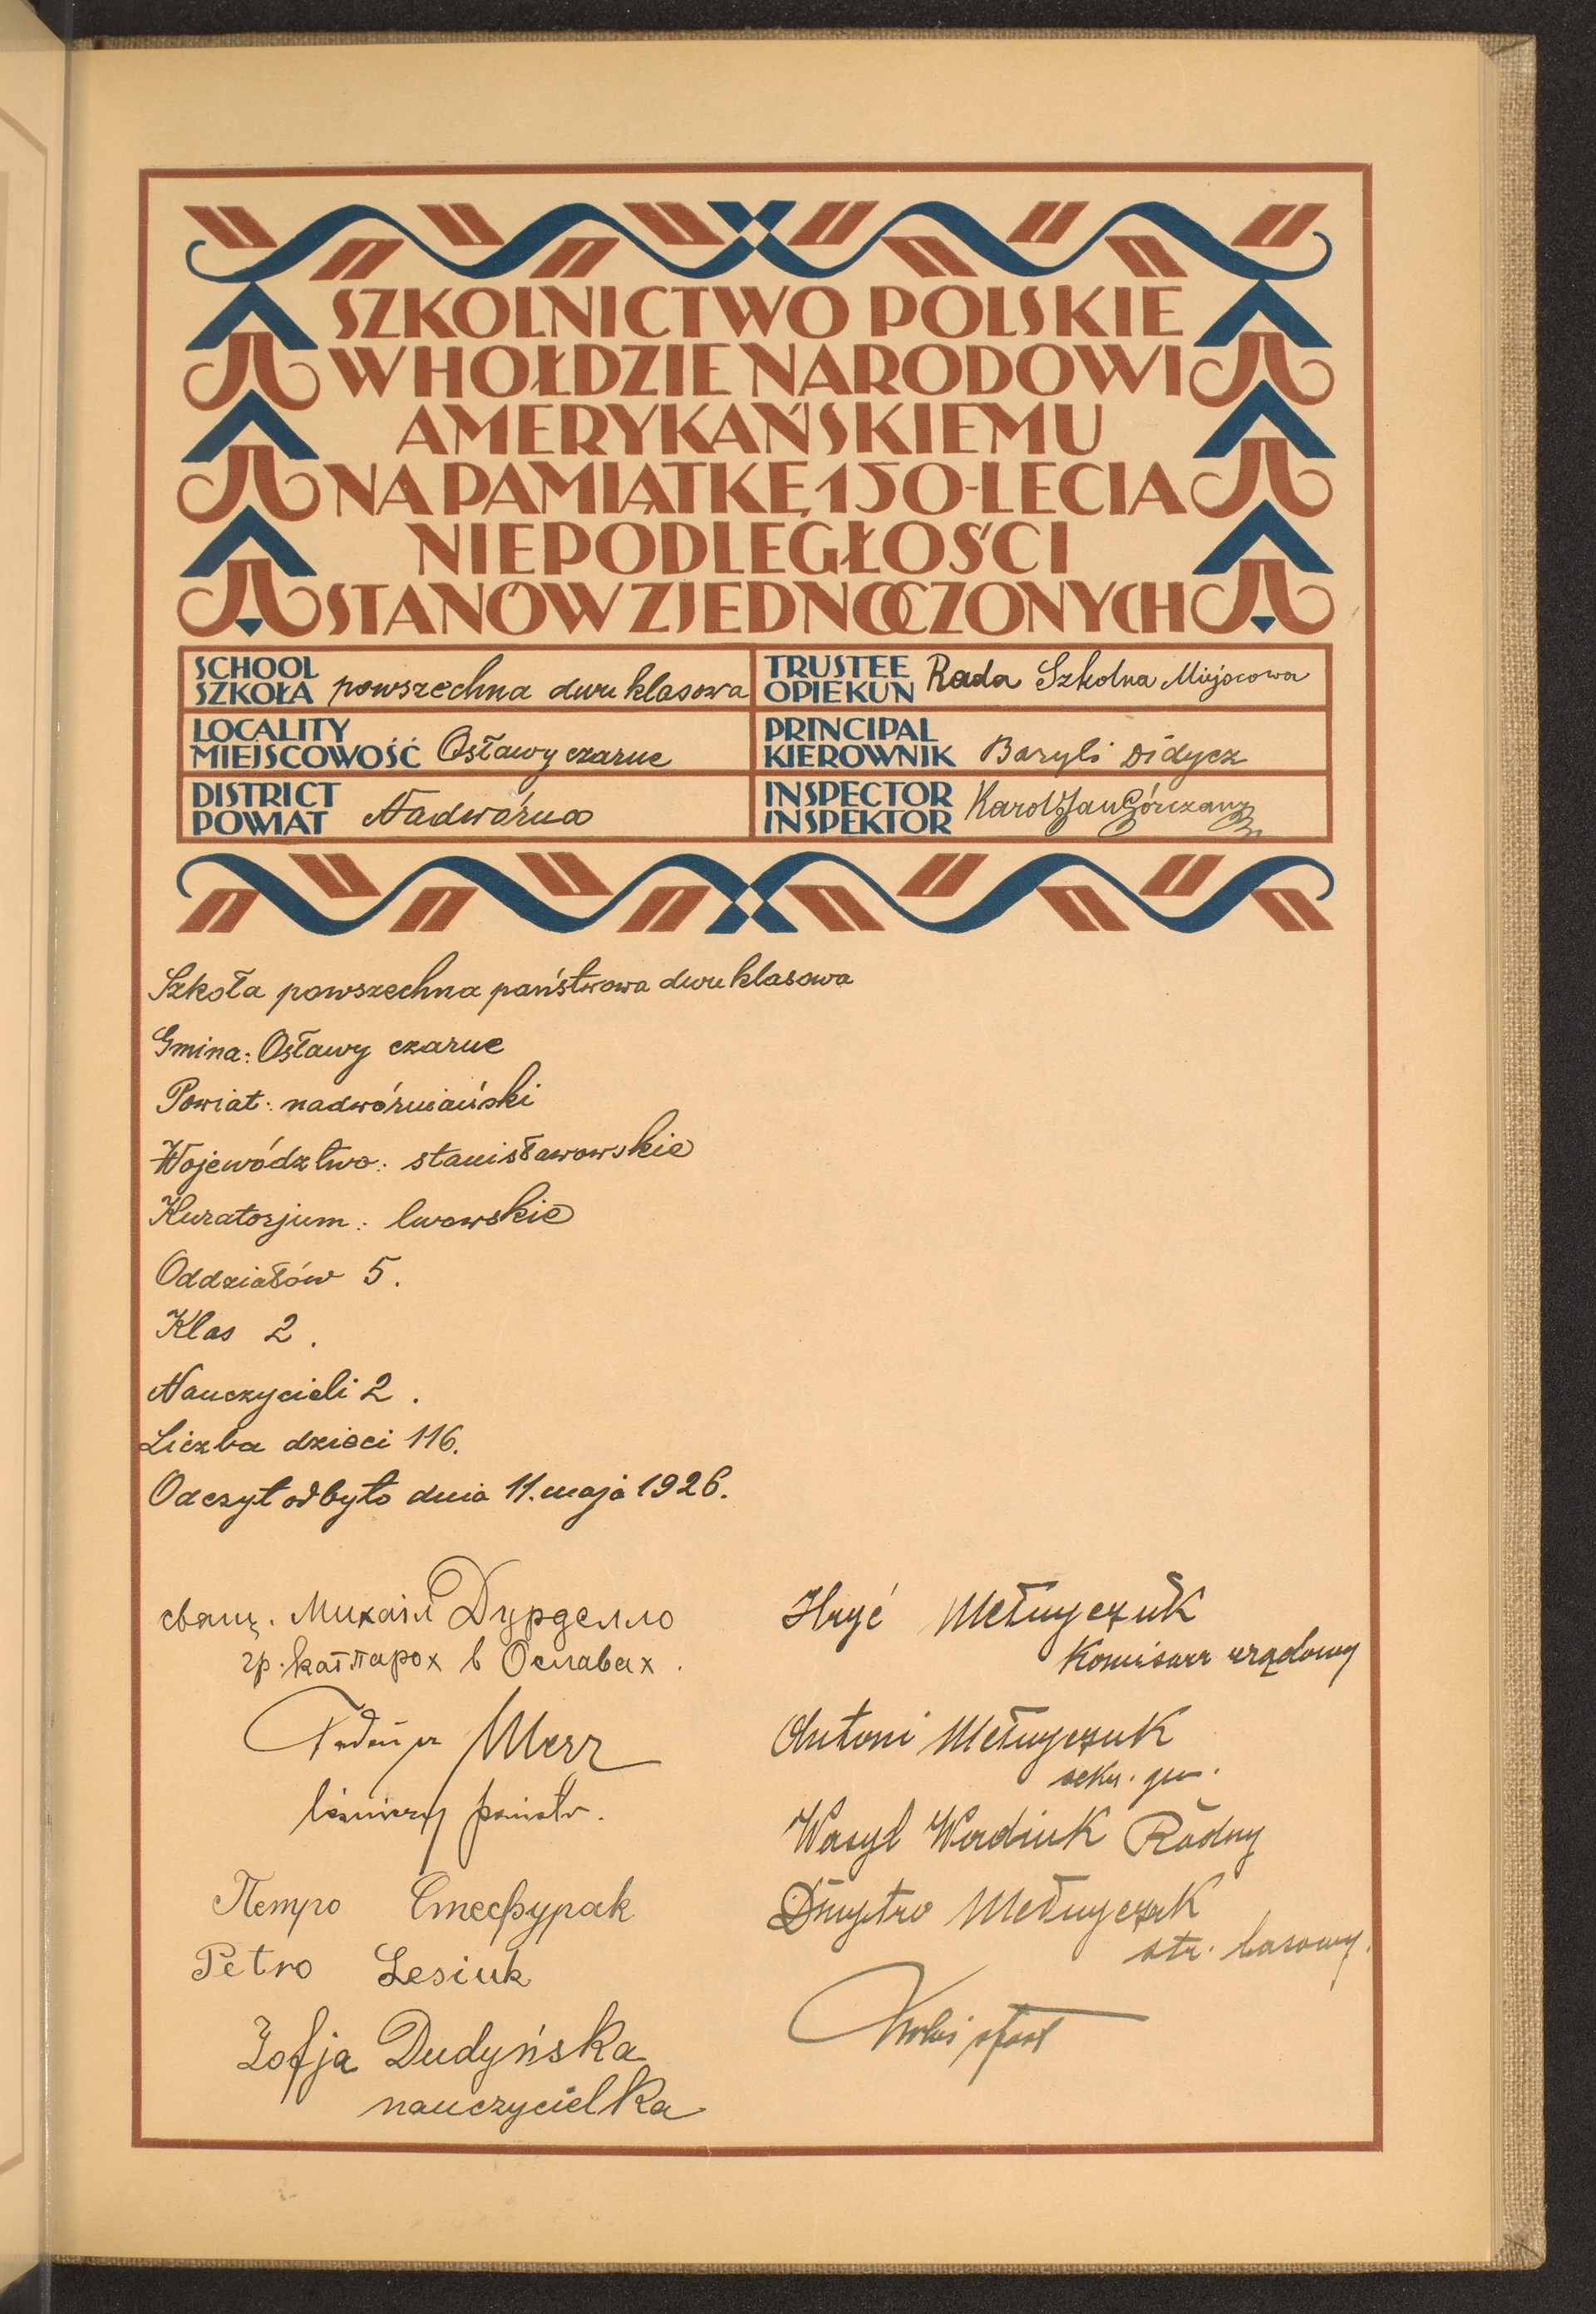 SZKOLNICTWO POLSKIE
W HOŁDZIE NARODOWI
AMERYKAŃSKIEMU
NA PAMIĄTKĘ 150-LECIA
NIEPODLEGŁOŚCI
STANÓW ZJEDNOCZONYCH
SCHOOL
SZKOŁA powszechna dwuklasowa
TRUSTEE
OPIEKUN Rada Szkolna Miejscowa
LOCALITY
MIEJSCOWOŚĆ Osławy czarne
PRINCIPAL
KIEROWNIK Bazyli Didycz
DISTRICT
POWIAT Nadwórna
INSPECTOR
INSPEKTOR Karol Jan Górczany
Szkoła powszechna państwowa dwuklasowa
Gmina: Osławy czarne
Powiat: nadwórniański
Województwo: stanisławowskie
Kuratorjum: lwowskie
Oddziałów 5.
Klas 2.
Nauczycieli 2.
Liczba dzieci 116.
Odczyt odbyto dnia 11. maja 1926.
свящ. Михаіл Дурделло
гр. кат парох в Ославах.
Tadeusz Merz
leśniczy państw.
Петро Стефурак
Petro Lesiuk
Zofja Dudyńska
nauczycielka
Hryć Mełnyczuk
Komisarz urzędowy
Antoni Mełnyczuk
sekr. gm.
Wasyl Werdiuk Radny
Dmytro Mełnyczuk
str. lasowy.